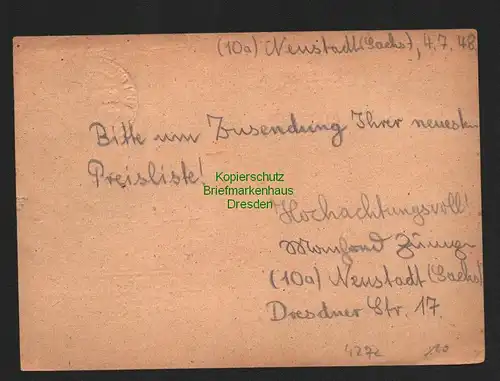 (10a) Neustadt (Sachs), 4.7.48
Bitte um Zusendung Ihrer neuesten
Preisliste!
Kopierschutz
Briefmarkenhaus
Dresden
Hochachtungsvoll!
(10a) Neustadt (Sachs)
Dresdner Str. 17.